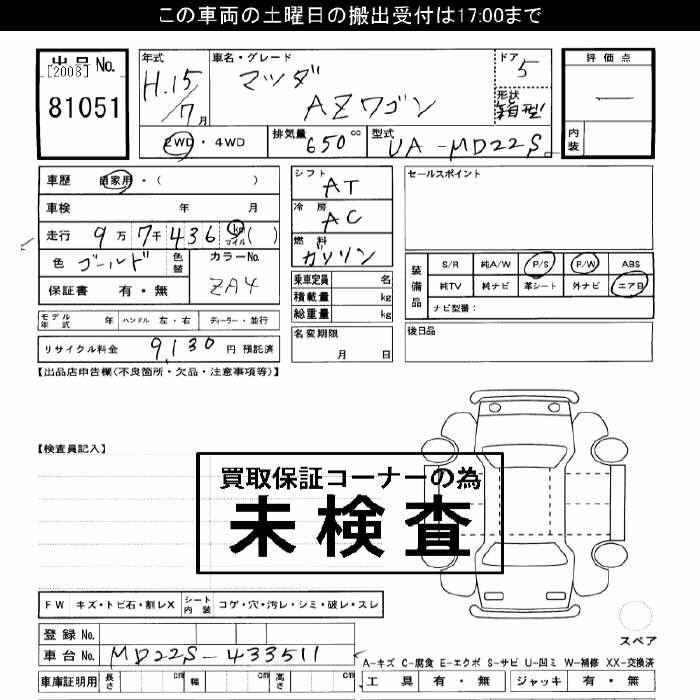 この車両の土曜日の搬出受付は17:00まで
出品No.
[2008]
81051
年式
H.15/7月
車名・グレード
マツダ
AZワゴン
ドア
5
形状
箱型
評価点
―
内装
2WD・4WD
排気量 650 cc
型式 UA-MD22S
車歴 自家用・( )
車検 年 月
走行 9万7千436 km マイル ( )
色 ゴールド 色替
カラーNo.
ZA4
保証書 有・無
シフト
AT
冷房
AC
燃料
ガソリン
乗車定員 名
積載量 kg
総重量 kg
セールスポイント
装備品
S/R 純A/W P/S P/W ABS
純TV 純ナビ 革シート 外ナビ エアB
ナビ型番:
モデル年式 年 ハンドル 左・右 ディーラー・並行
名変期限
月 日
後日品
リサイクル料金 9,130 円 預託済
【出品店申告欄(不良箇所・欠品・注意事項等)】
【検査員記入】
買取保証コーナーの為
未検査
FW キズ・トビ石・割レX シート内装 コゲ・穴・汚レ・シミ・破レ・スレ
スペア
登録No.
車台No. MD22S-433511
A-キズ C-腐食 E-エクボ S-サビ U-凹ミ W-補修 XX-交換済
車庫証明用 長さ cm 幅 cm 高さ cm
工具 有・無 ジャッキ 有・無